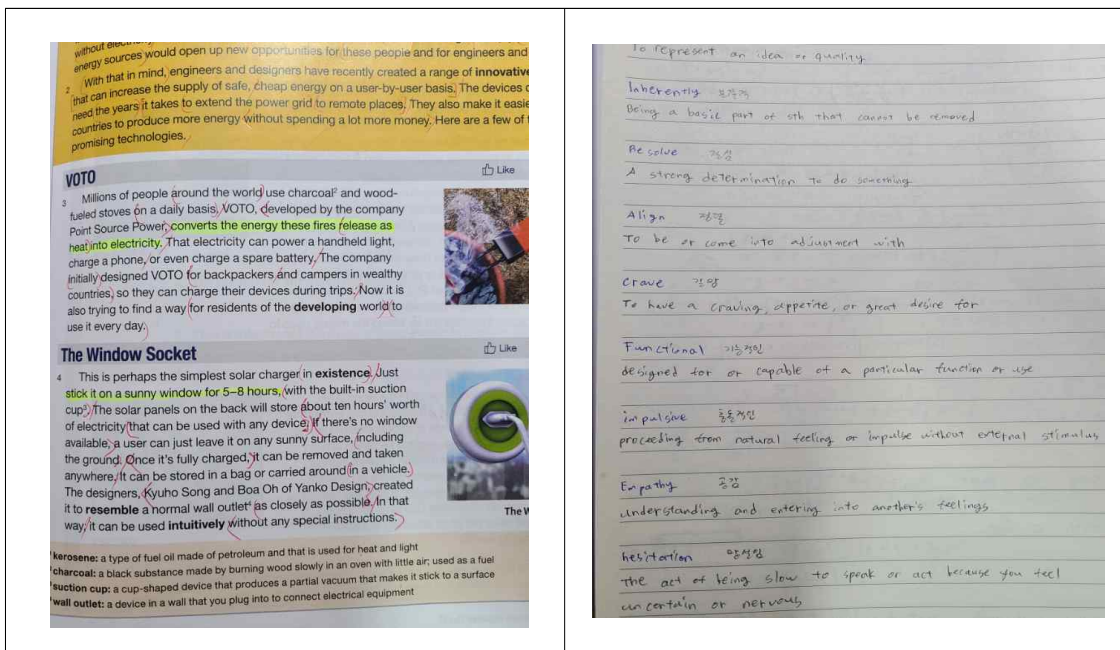 without
energy sources would open up new opportunities for these people and for engineers and
2 With that in mind, engineers and designers have recently created a range of innovative
that can increase the supply of safe, cheap energy on a user-by-user basis. The devices
need the years it takes to extend the power grid to remote places. They also make it easie
countries to produce more energy without spending a lot more money. Here are a few of
promising technologies.
VOTO
Like
3 Millions of people around the world use charcoal² and wood-
fueled stoves on a daily basis. VOTO, developed by the company
Point Source Power, converts the energy these fires release as
heat into electricity. That electricity can power a handheld light,
charge a phone, or even charge a spare battery. The company
initially designed VOTO for backpackers and campers in wealthy
countries, so they can charge their devices during trips. Now it is
also trying to find a way for residents of the developing world to
use it every day.
The Window Socket
Like
4 This is perhaps the simplest solar charger in existence. Just
stick it on a sunny window for 5–8 hours, with the built-in suction
cup³. The solar panels on the back will store about ten hours' worth
of electricity that can be used with any device. If there's no window
available, a user can just leave it on any sunny surface, including
the ground. Once it's fully charged, it can be removed and taken
anywhere. It can be stored in a bag or carried around in a vehicle.
The designers, Kyuho Song and Boa Oh of Yanko Design, created
it to resemble a normal wall outlet⁴ as closely as possible. In that
way, it can be used intuitively without any special instructions.
The W
kerosene: a type of fuel oil made of petroleum and that is used for heat and light
charcoal: a black substance made by burning wood slowly in an oven with little air; used as a fuel
suction cup: a cup-shaped device that produces a partial vacuum that makes it stick to a surface
wall outlet: a device in a wall that you plug into to connect electrical equipment
To represent an idea or quality
Inherently
Being a basic part of sth that cannot be removed
Resolve 결심
A strong determination to do something
Align 정렬
To be or come into adjustment with
Crave 갈망
To have a craving, appetite, or great desire for
Functional 기능적인
designed for or capable of a particular function or use
impulsive 충동적인
proceeding from natural feeling or impulse without external stimulus
Empathy 공감
understanding and entering into another's feelings
hesitation 망설임
the act of being slow to speak or act because you feel
uncertain or nervous